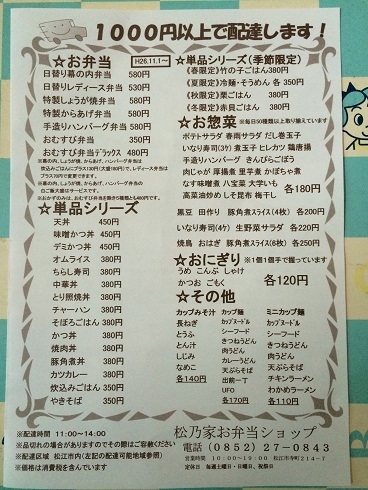 1000円以上で配達します！
☆お弁当 H26.11.1～
日替り幕の内弁当 580円
日替りレディース弁当 530円
特製しょうが焼弁当 580円
特製からあげ弁当 580円
手造りハンバーグ弁当 580円
おむすび弁当 350円
おむすび弁当デラックス 480円
※幕の内、しょうが焼、からあげ、ハンバーグ弁当の
ご飯大盛はサービスです。
☆単品シリーズ
天丼 450円
味噌かつ丼 450円
デミかつ丼 450円
オムライス 380円
ちらし寿司 380円
中華丼 380円
とり照焼丼 380円
チャーハン 380円
そぼろごはん 380円
かつ丼 380円
焼肉丼 380円
豚角煮丼 380円
カツカレー 380円
炊込みごはん 350円
やきそば 350円
☆単品シリーズ（季節限定）
《春限定》竹の子ごはん 380円
《夏限定》冷麺・そうめん 各 350円
《秋限定》栗ごはん 380円
《冬限定》赤貝ごはん 380円
☆お惣菜 ※毎日50種類以上取り揃えています
ポテトサラダ 春雨サラダ だし巻玉子
いなり寿司(3ケ) 煮玉子 ヒレカツ 鶏唐揚
手造りハンバーグ きんぴらごぼう
肉じゃが 厚揚煮 里芋煮 かぼちゃ煮
なす味噌煮 八宝菜 大学いも
高菜油炒め しそ昆布 梅干し 各180円
黒豆 田作り 豚角煮スライス(4枚) 各200円
いなり寿司(4ケ) 生野菜サラダ 各220円
焼鳥 おはぎ 豚角煮スライス(6枚) 各250円
☆おにぎり ※1個1個手で握っています
うめ こんぶ しゃけ
かつお ごもく 各120円
☆その他
カップみそ汁
長ねぎ
とうふ
とん汁
しじみ
なめこ
各140円
カップ麺
カップヌードル
シーフード
きつねうどん
肉うどん
カレーうどん
天ぷらそば
出前一丁
UFO
各170円
ミニカップ麺
カップヌードル
シーフード
きつねうどん
肉うどん
天ぷらそば
チキンラーメン
わかめラーメン
各110円
※配達時間 11:00～14:00
※品切れの場合がありますのでその際はご容赦ください
※配達区域 松江市内(左記の配達可能地域参照)
※価格は消費税を含んでいます
松乃家お弁当ショップ
電話 （0852）27－0843
営業時間 10:00～19:00 松江市寺町214－7
定休日 毎週土曜日・日曜日、祝祭日